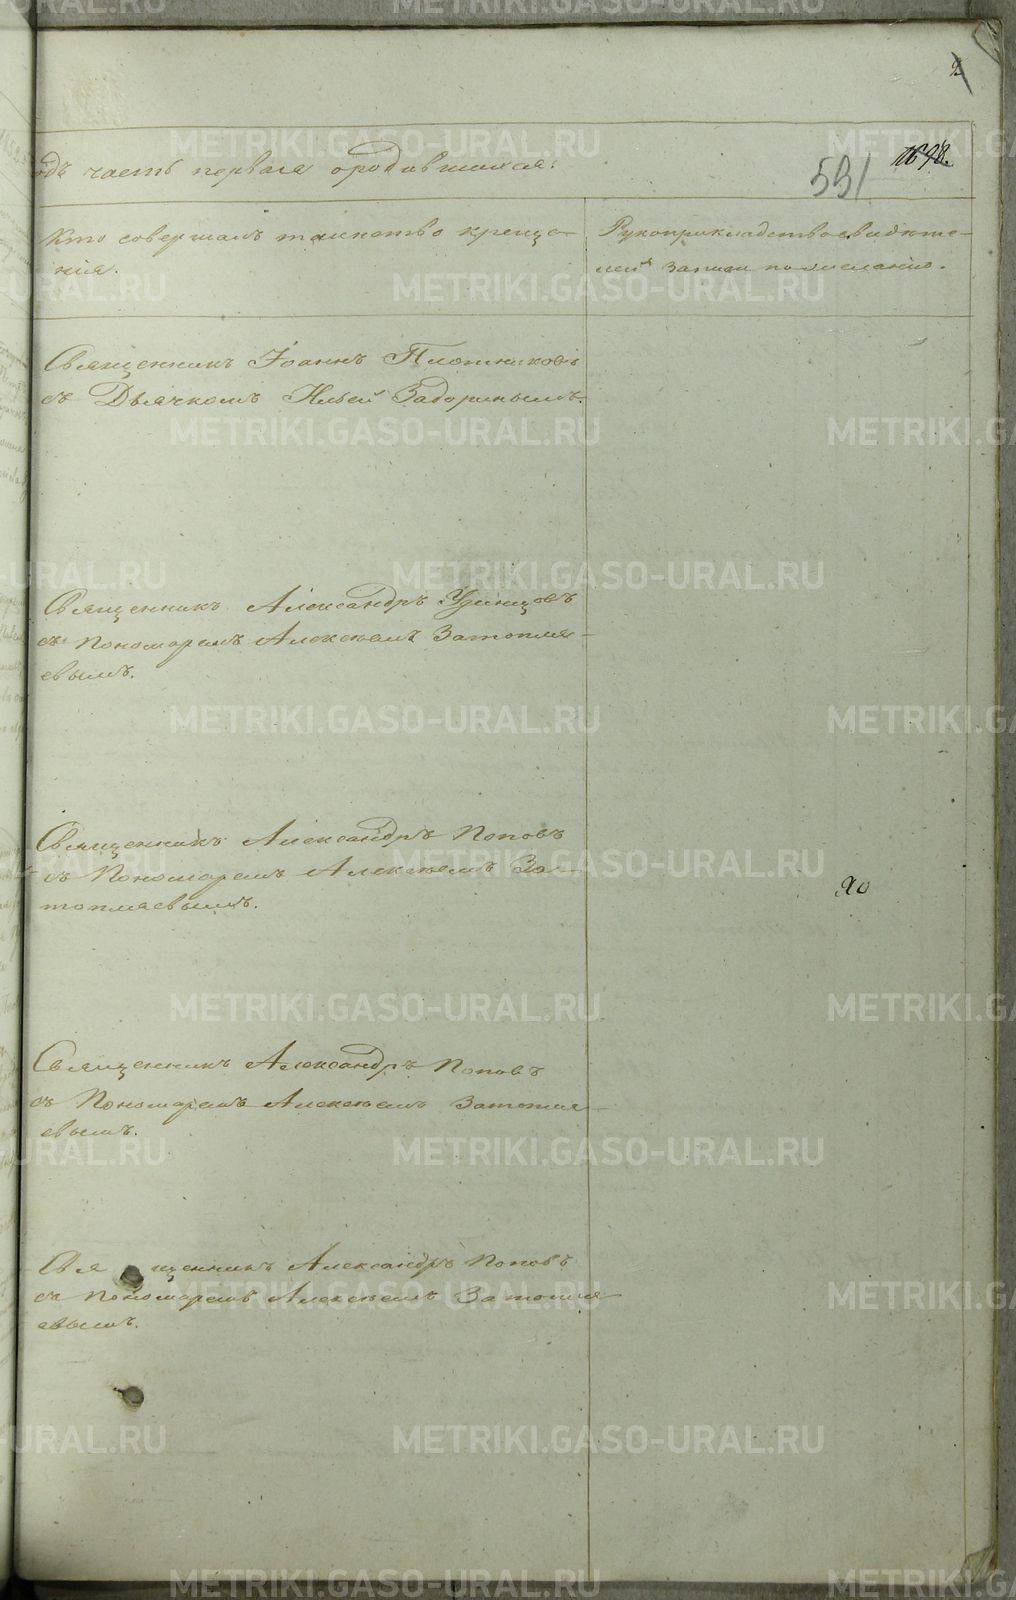 2
одъ часть первая ородившихся:
591
1698.
Кто совершалъ таинство креще-
нiя.
Рукоприкладство свидѣте-
лей записи по желанiю.
Священникъ Iоаннъ Плотниковъ
съ Дьячкомъ Ильей Задоринымъ.
Священникъ Александръ Удинцовъ
съ Пономаремъ Алексѣемъ Затопля-
евымъ.
Священникъ Александръ Поповъ
съ Пономаремъ Алексѣемъ За-
топляевымъ.
20
Священникъ Александръ Поповъ
съ Пономаремъ Алексѣемъ Затопля-
евымъ.
Священникъ Александръ Поповъ
съ Пономаремъ Алексѣемъ Затопля-
евымъ.
METRIKI.GASO-URAL.RU